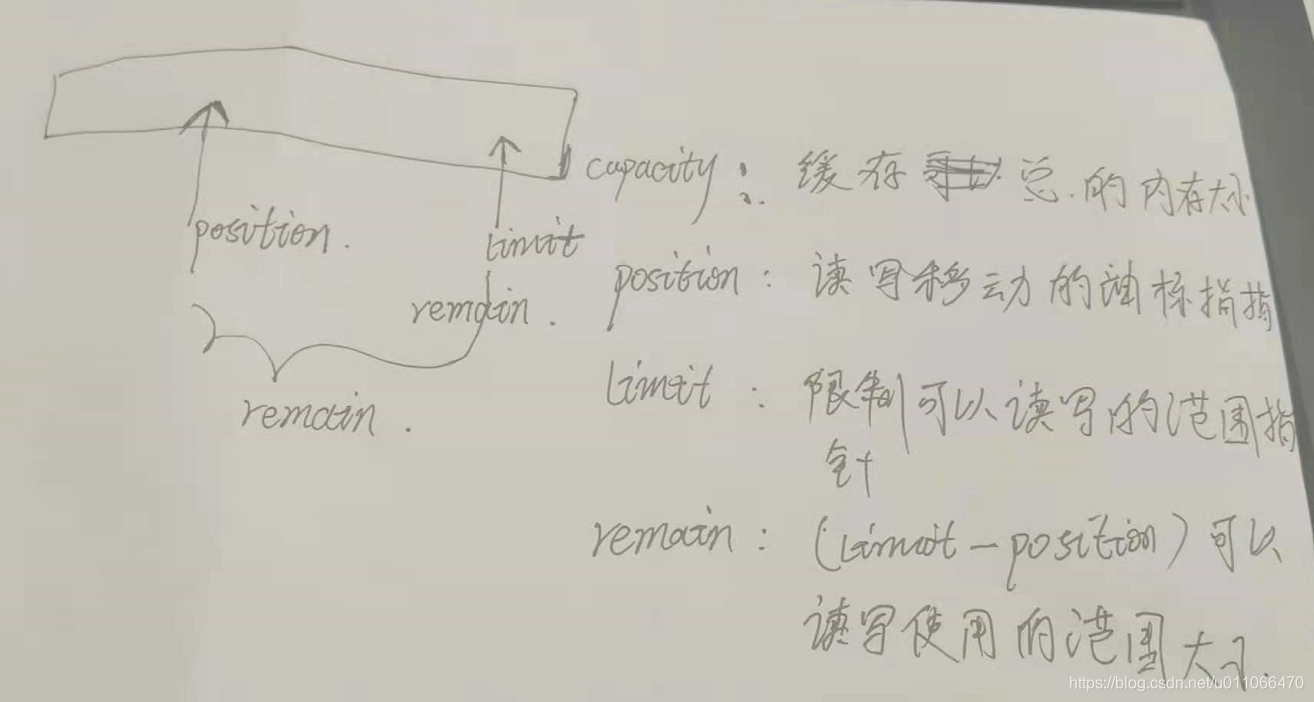 capacity : 缓存 总的内存大小
position.
limit
position : 读写移动的油标指指
remain.
limit : 限制可以读写的范围指
针
remain.
remain : (limit - position) 可以
读写使用的范围大小.
https://blog.csdn.net/u011066470